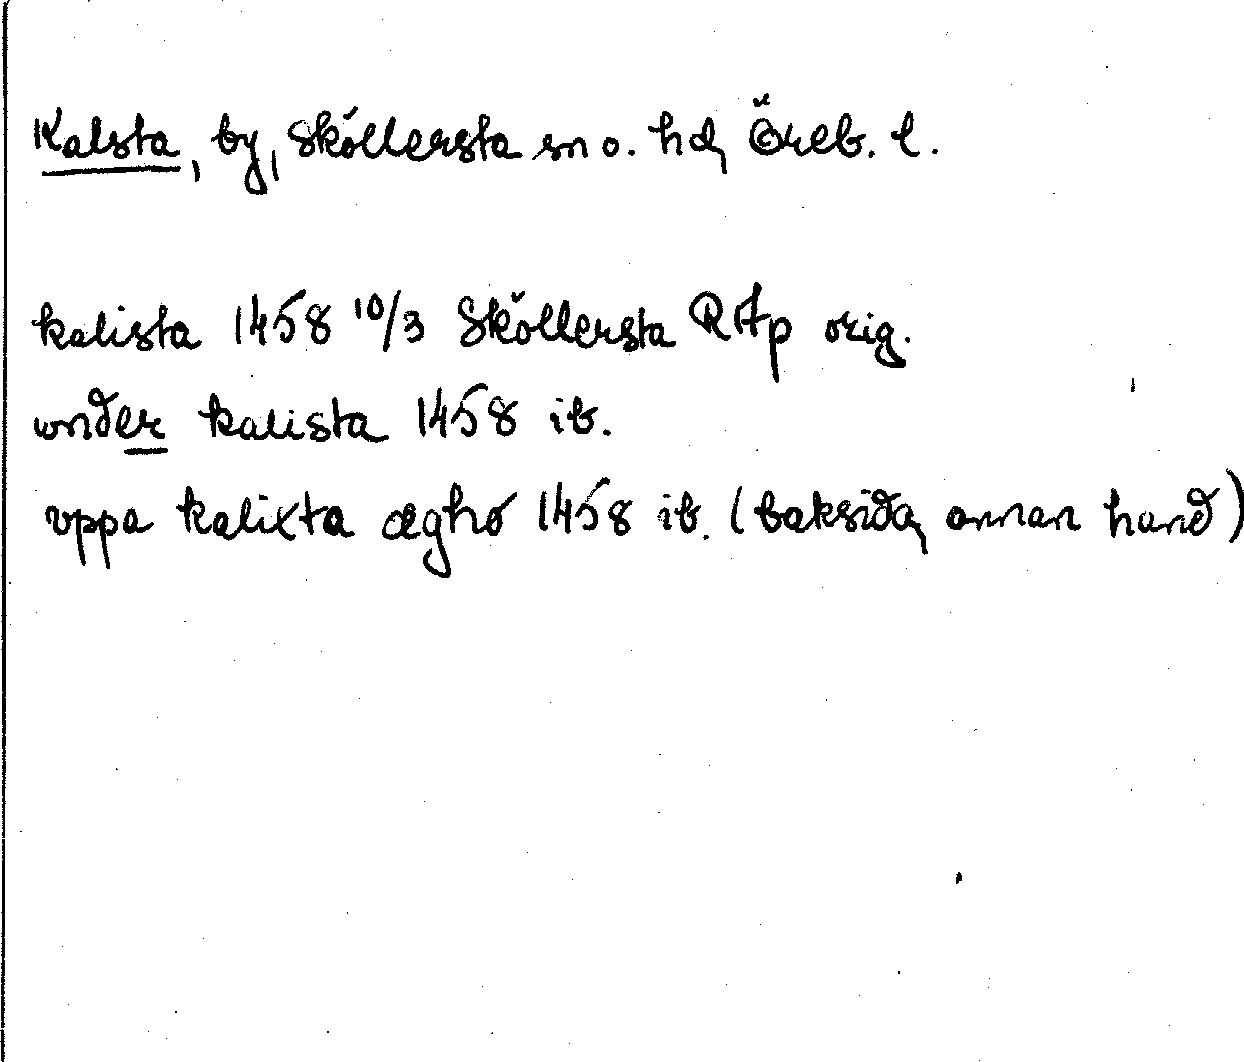 Kalsta, by, Sköllersta sn o. hd, Öreb. l.
kalista 1458 10/3 Sköllersta RAp orig.
wnder kalista 1458 ib.
vppa kalixta æghor 1458 ib. (baksida, annan hand)